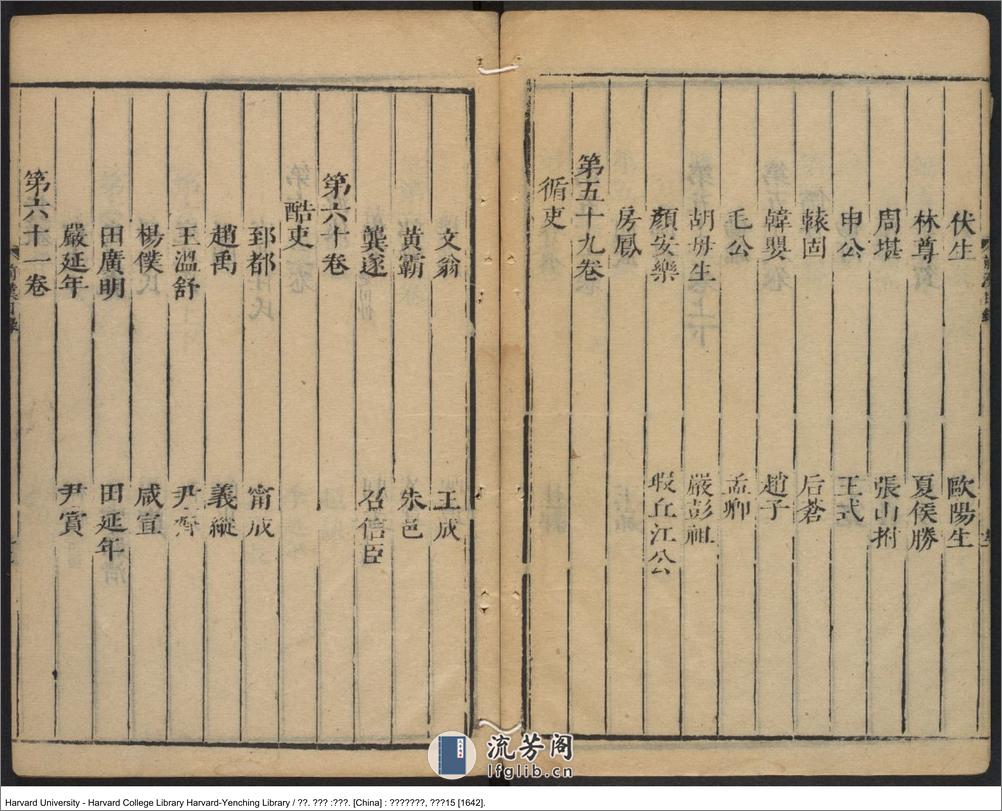 伏生 歐陽生
林尊 夏侯勝
周堪 張山拊
申公 王式
轅固 后蒼
韓嬰 趙子
毛公 孟卿
胡毋生 嚴彭祖
顏安樂 瑕丘江公
房鳳
第五十九卷
循吏
文翁 王成
黃霸 朱邑
龔遂 召信臣
第六十卷
酷吏
郅都 甯成
趙禹 義縱
王溫舒 尹齊
楊僕 咸宣
田廣明 田延年
嚴延年 尹賞
第六十一卷
流芳阁
lfglib.cn
Harvard University - Harvard College Library Harvard-Yenching Library / ??. ??? :???. [China] : ???????, ???15 [1642].